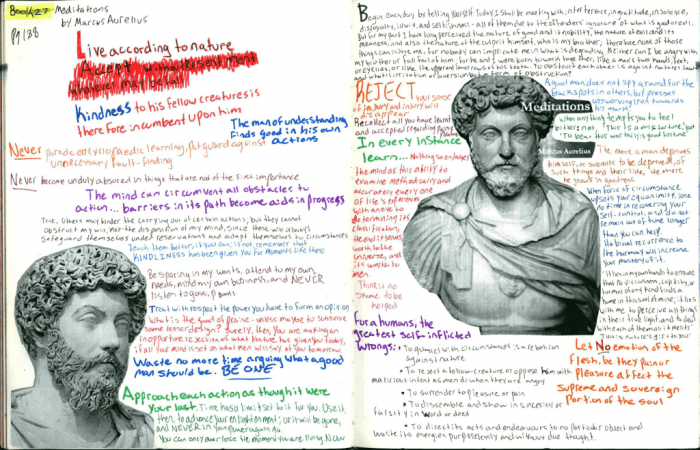 Meditations
by Marcus Aurelius
Pg 138
Live according to nature
Kindness to his fellow creatures is
therefore incumbent upon him
The man of understanding
finds good in his own
actions
Never parade encyclopaedic learning, put guard against
unnecessary fault-finding
Never become unduly absored in things that are not of the first importance
The mind can circumvent all obstacles to
action... barriers in its path become aids in progress
True, others may hinder the carrying out of certain actions, but they cannot
obstruct my will, nor the disposition of my mind, since these will always
safeguard themselves under reservations and adapt themselves to circumstances
Teach them better, if you can; if not, remember that
KINDLINESS has been given you for moments like these
Be sparing in my wants, attend to my own
needs, mind my own business, and NEVER
listen to gossip
Treat with respect the power you have to form an opinion
What is the good of praise - unless maybe to subserve
some lesser design? Surely, then, you are making an
inopportune rejection of what Nature has given you today,
if all your mind is set on what men will say of you tomorrow.
Waste no more time arguing what a good
man should be. BE ONE
Approach each action as though it were
your last. Time has a limit set to it for you. Use it,
then, to advance your enlightenment; or it will be gone,
and NEVER in your power again
You can only ever lose the moment you are living NOW
Begin each day by telling yourself: Today I shall be meeting with interference, ingratitude, insolence,
disloyalty, ill will, and selfishness - all of them due to the offenders' ignorance of what is good or evil.
But for my part I have long perceived the nature of good and its nobility, the nature of evil and its
meanness, and also the nature of the culprit himself, who is my brother; therefore none of those
things can injure me, for nobody can implicate me in what is degrading. Neither can I be angry with
my brother or fall foul of him; for he and I were born to work together, like a man's two hands, feet,
or eyelids, or like the upper and lower rows of his teeth. To obstruct each other is against nature's
and what is irritation or aversion but a form of obstruction?
REJECT your sense
of injury and injury will
disappear
Recollect all you have learnt
and accepted regarding
In every instance
learn... Nothing so enlarges
the mind as this ability to
examine methodically and
accurately every one
of life's experiences
with an eye to
determining its
classification,
the end it serves,
worth to the
universe, and
its worth to
men.
Think it
no shame to be
helped
For a humans, the
greatest self-inflicted
wrongs:
• To quarrel with circumstances is a rebellion
against nature
• To reject a fellow-creature or oppose him with
malicious intent as men do when they are angry
• To surrender to pleasure or pain
• To dissemble and show insincerity or
falsity in word or deed
• To direct its acts and endeavours to no particular object and
waste its energies purposelessly and without due thought.
Meditations
Marcus Aurelius
A good man does not spy around for the
black spots in others, but presses
unswervingly on towards
his mark
When anything tempts you to feel
bitter: not, 'This is a misfortune', but
'To bear this worthily is good fortune'
The more a man deprives
himself, or submits to be deprived, of
such things and their like, the more
he grows in goodness
When force of circumstance
upsets your equanimity, lose
no time in recovering your
self-control, and do not
remain out of tune longer
than you can help.
Habitual recurrence to
the harmony will increase
your mastery of it.
It lies in my hands to ensure
that no viciousness, cupidity, or
turmoil of any kind finds a
home in this soul of mine; it lies
with me to perceive all things
in their true light, and to deal
with each of them as it merits
This is nature's gift to you
Let No emotion of the
flesh, be they pain or
pleasure affect the
supreme and sovereign
portion of the soul